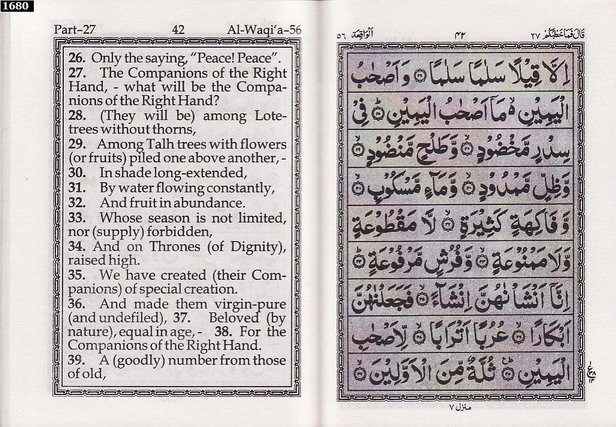 1680
Part–27 42 Al-Waqi’a–56
26. Only the saying, “Peace! Peace”.
27. The Companions of the Right
Hand, - what will be the Compa-
nions of the Right Hand?
28. (They will be) among Lote-
trees without thorns,
29. Among Talh trees with flowers
(or fruits) piled one above another, -
30. In shade long-extended,
31. By water flowing constantly,
32. And fruit in abundance.
33. Whose season is not limited,
nor (supply) forbidden,
34. And on Thrones (of Dignity),
raised high.
35. We have created (their Com-
panions) of special creation.
36. And made them virgin-pure
(and undefiled), 37. Beloved (by
nature), equal in age, - 38. For the
Companions of the Right Hand.
39. A (goodly) number from those
of old,
قَالَ فَمَا خَطْبُكُمْ ٢٧ ٤٢ اَلْوَاقِعَة ٥٦
اِلَّا قِيْلًا سَلٰمًا سَلٰمًا ۝ وَاَصْحٰبُ
الْيَمِيْنِ ۙ مَاۤ اَصْحٰبُ الْيَمِيْنِ ۝ فِيْ
سِدْرٍ مَّخْضُوْدٍ ۝ وَّطَلْحٍ مَّنْضُوْدٍ ۝
وَّظِلٍّ مَّمْدُوْدٍ ۝ وَّمَآءٍ مَّسْكُوْبٍ ۝
وَّفَاكِهَةٍ كَثِيْرَةٍ ۝ لَّا مَقْطُوْعَةٍ
وَّلَا مَمْنُوْعَةٍ ۝ وَّفُرُشٍ مَّرْفُوْعَةٍ ۝
اِنَّاۤ اَنْشَاْنٰهُنَّ اِنْشَآءً ۝ فَجَعَلْنٰهُنَّ
اَبْكَارًا ۝ عُرُبًا اَتْرَابًا ۝ لِّاَصْحٰبِ
الْيَمِيْنِ ۝ ثُلَّةٌ مِّنَ الْاَوَّلِيْنَ ۝
منزل ٧